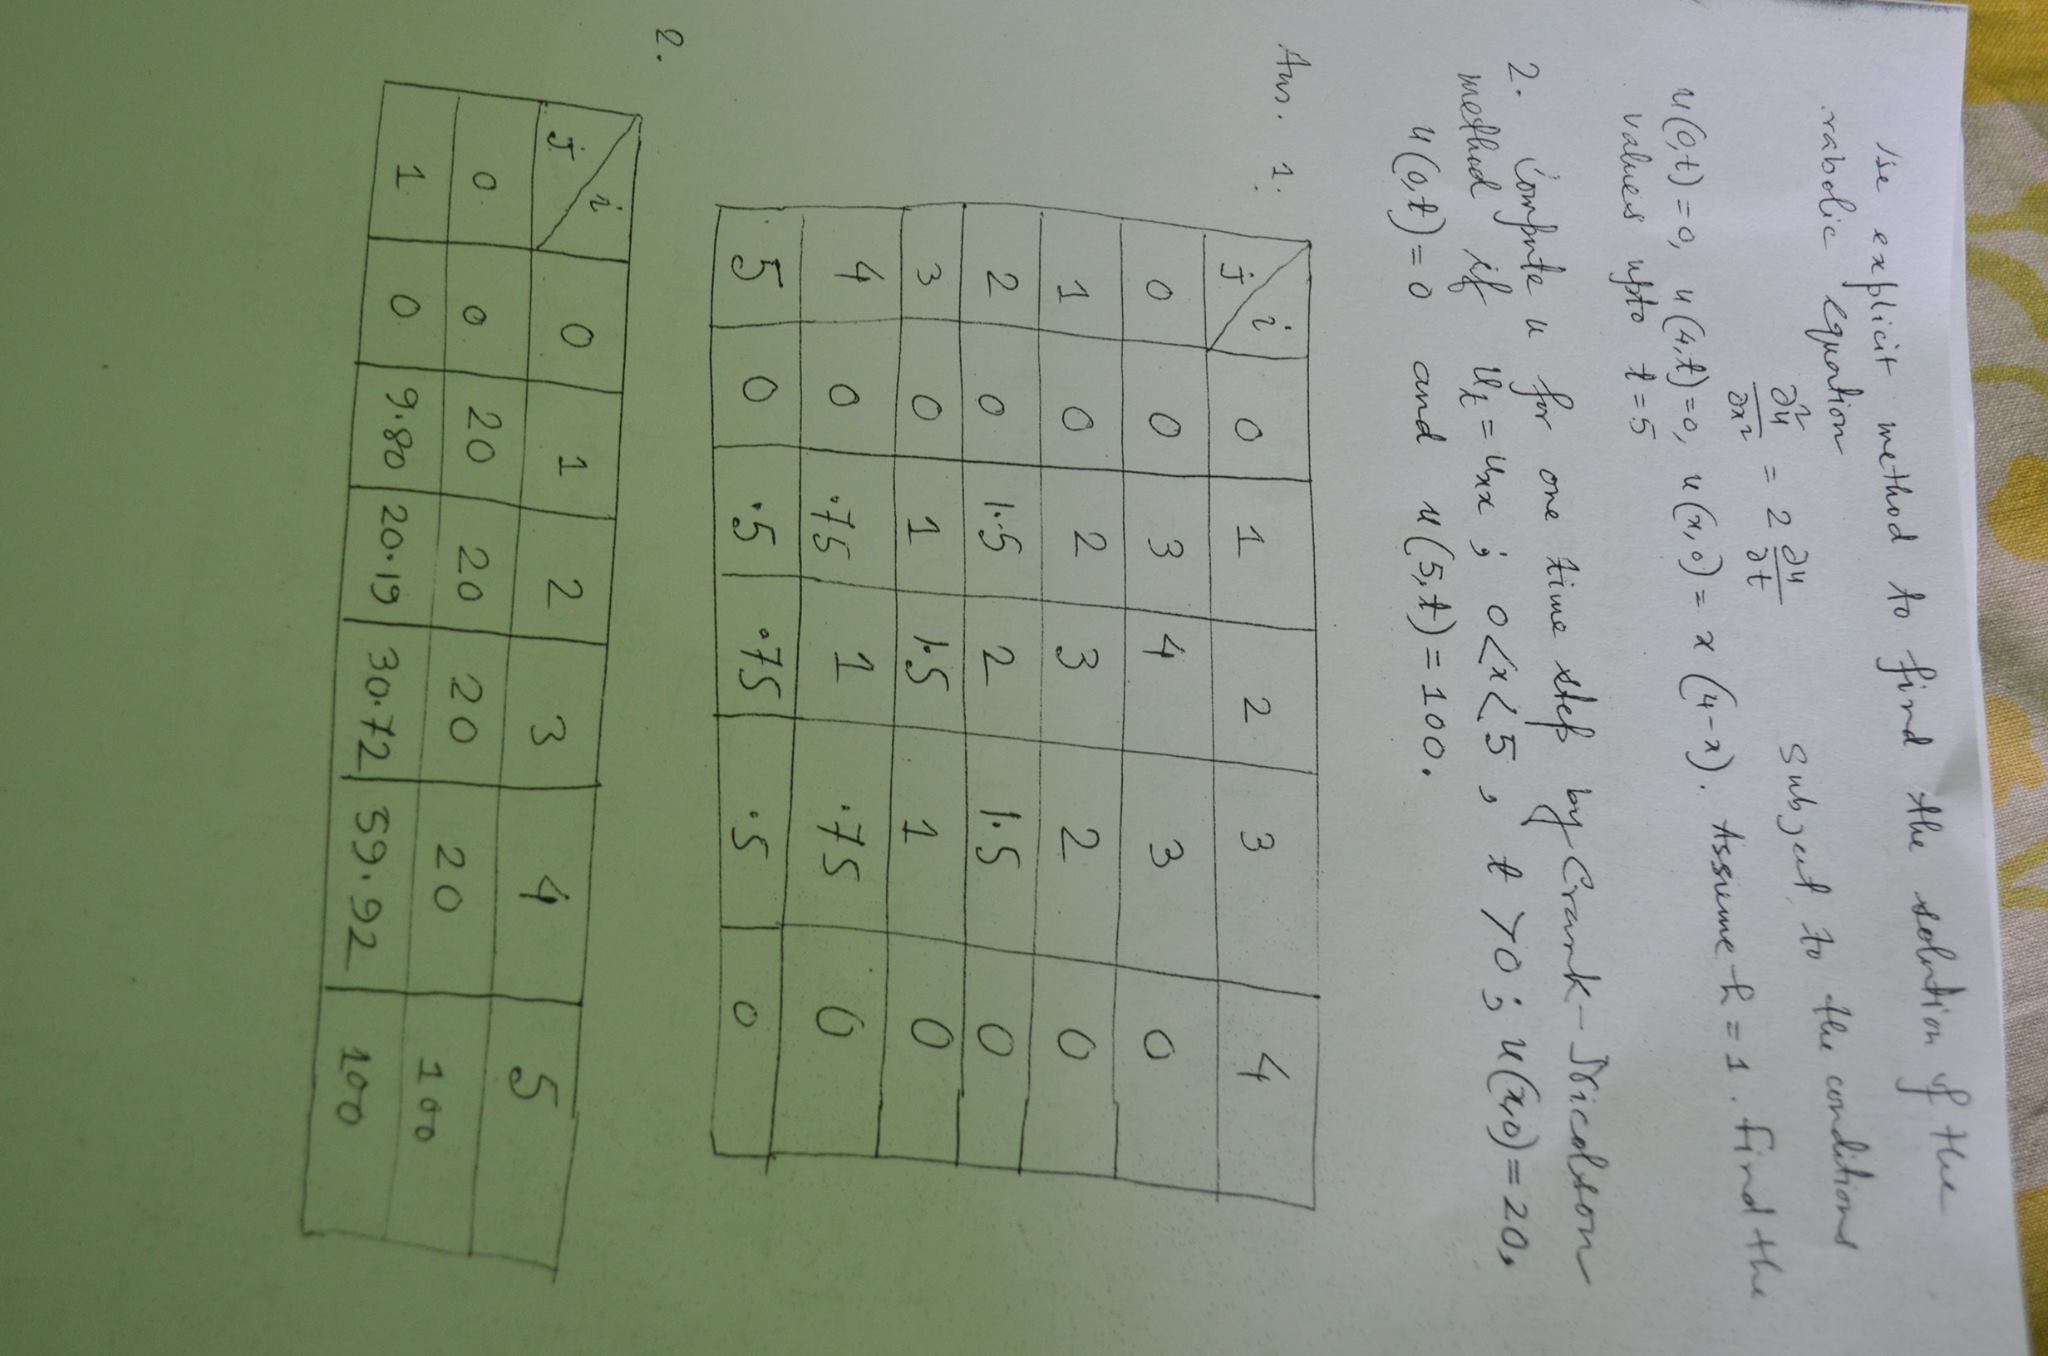 Use explicit method to find the solution of the
rabolic equation
∂²u/∂x² = 2 ∂u/∂t subject to the conditions
u(0,t)=0, u(4,t)=0, u(x,0)= x(4-x). Assume h=1. Find the
values upto t=5
2. Compute u for one time step by Crank-Nicolson
method if u_t = u_xx ; 0<x<5, t>0; u(x,0)=20,
u(0,t)=0 and u(5,t)=100.
Ans. 1.
j i 0 1 2 3 4
0 0 3 4 3 0
1 0 2 3 2 0
2 0 1.5 2 1.5 0
3 0 1 1.5 1 0
4 0 .75 1 .75 0
5 0 .5 .75 .5 0
2.
j i 0 1 2 3 4 5
0 0 20 20 20 20 100
1 0 9.80 20.19 30.72 59.92 100